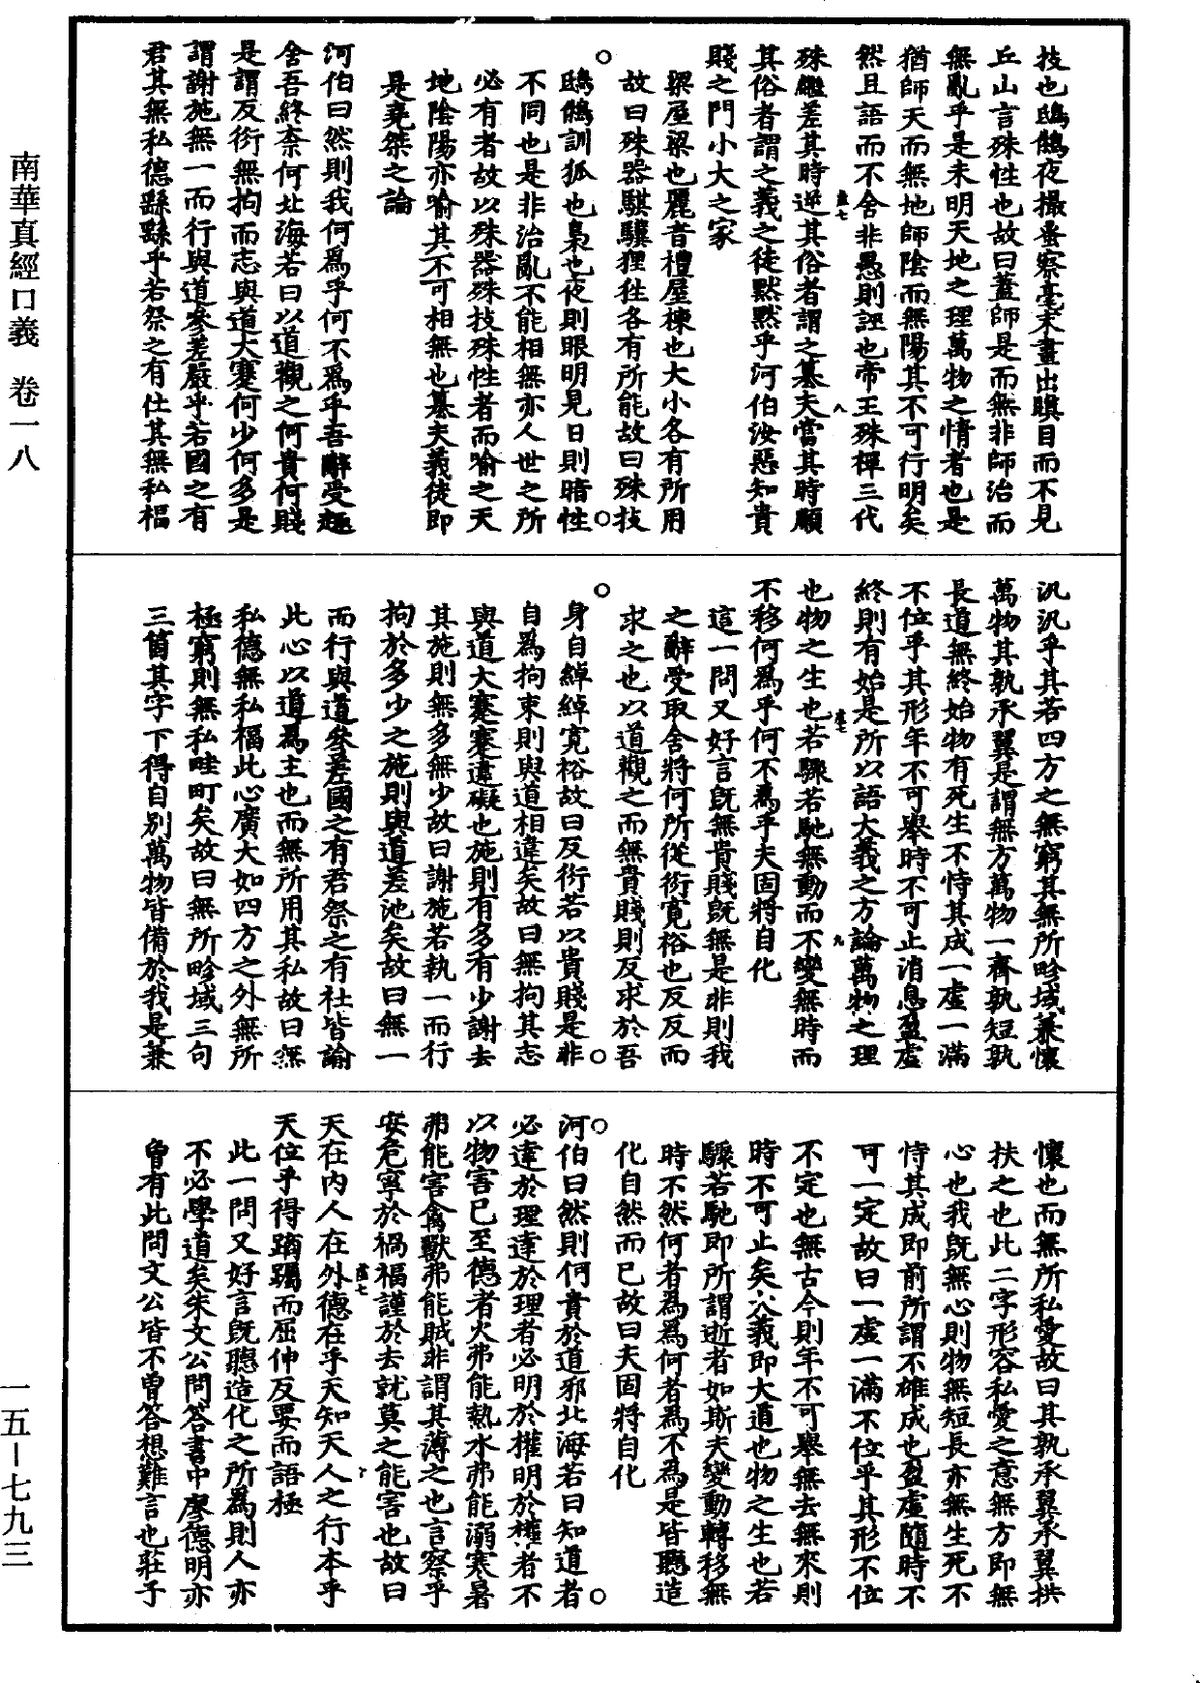 技也鴟鵂夜撮蚤察毫末晝出瞋目而不見
丘山言殊性也故曰蓋師是而無非師治而
無亂乎是未明天地之理萬物之情者也是
猶師天而無地師陰而無陽其不可行明矣
然且語而不舍非愚則誣也帝王殊禪三代
殊繼差其時逆其俗者謂之篡夫當其時順
其俗者謂之義之徒黙黙乎河伯汝惡知貴
賤之門小大之家
梁屋梁也麗音禮屋棟也大小各有所用
故曰殊器騏驥狸狌各有所能故曰殊技
鴟鵂訓狐也梟也夜則眼明見日則暗性
不同也是非治亂不能相無亦人世之所
必有者故以殊器殊技殊性者而喻之天
地陰陽亦喻其不可相無也篡夫義徒即
是堯桀之論
河伯曰然則我何為乎何不為乎吾辭受趣
舍吾終柰何北海若曰以道觀之何貴何賤
是謂反衍無拘而志與道大蹇何少何多是
謂謝施無一而行與道參差嚴乎若國之有
君其無私德繇繇乎若祭之有社其無私福
汎汎乎其若四方之無窮其無所畛域兼懷
萬物其孰承翼是謂無方萬物一齊孰短孰
長道無終始物有死生不恃其成一虛一滿
不位乎其形年不可舉時不可止消息盈虛
終則有始是所以語大義之方論萬物之理
也物之生也若驟若馳無動而不變無時而
不移何為乎何不為乎夫固將自化
這一問又好言既無貴賤既無是非則我
之辭受取舍將何所從衍寬裕也反反而
求之也以道觀之而無貴賤則反求於吾
身自綽綽寬裕故曰反衍若以貴賤是非
自為拘束則與道相違矣故曰無拘其志
與道大蹇蹇違礙也施則有多有少謝去
其施則無多無少故曰謝施若執一而行
拘於多少之施則與道差池矣故曰無一
而行與道參差國之有君祭之有社皆諭
此心以道為主也而無所用其私故曰無
私德無私福此心廣大如四方之外無所
極窮則無私畦町矣故曰無所畛域三句
三箇其字下得自別萬物皆備於我是兼
懷也而無所私愛故曰其孰承翼承翼拱
扶之也此二字形容私愛之意無方即無
心也我既無心則物無短長亦無生死不
恃其成即前所謂不雄成也盈虛隨時不
可一定故曰一虛一滿不位乎其形不位
不定也無古今則年不可舉無去無來則
時不可止矣大義即大道也物之生也若
驟若馳即所謂逝者如斯夫變動轉移無
時不然何者為為何者為不為是皆聽造
化自然而已故曰夫固將自化
河伯曰然則何貴於道邪北海若曰知道者
必達於理達於理者必明於權明於權者不
以物害己至德者火弗能熱水弗能溺寒暑
弗能害禽獸弗能賊非謂其薄之也言察乎
安危寧於禍福謹於去就莫之能害也故曰
天在內人在外德在乎天知天人之行本乎
天位乎得蹢躅而屈伸反要而語極
此一問又好言既聽造化之所為則人亦
不必學道矣朱文公問答書中廖德明亦
曾有此問文公皆不曾答想難言也莊子
南華真經口義 卷一八
一五—七九三